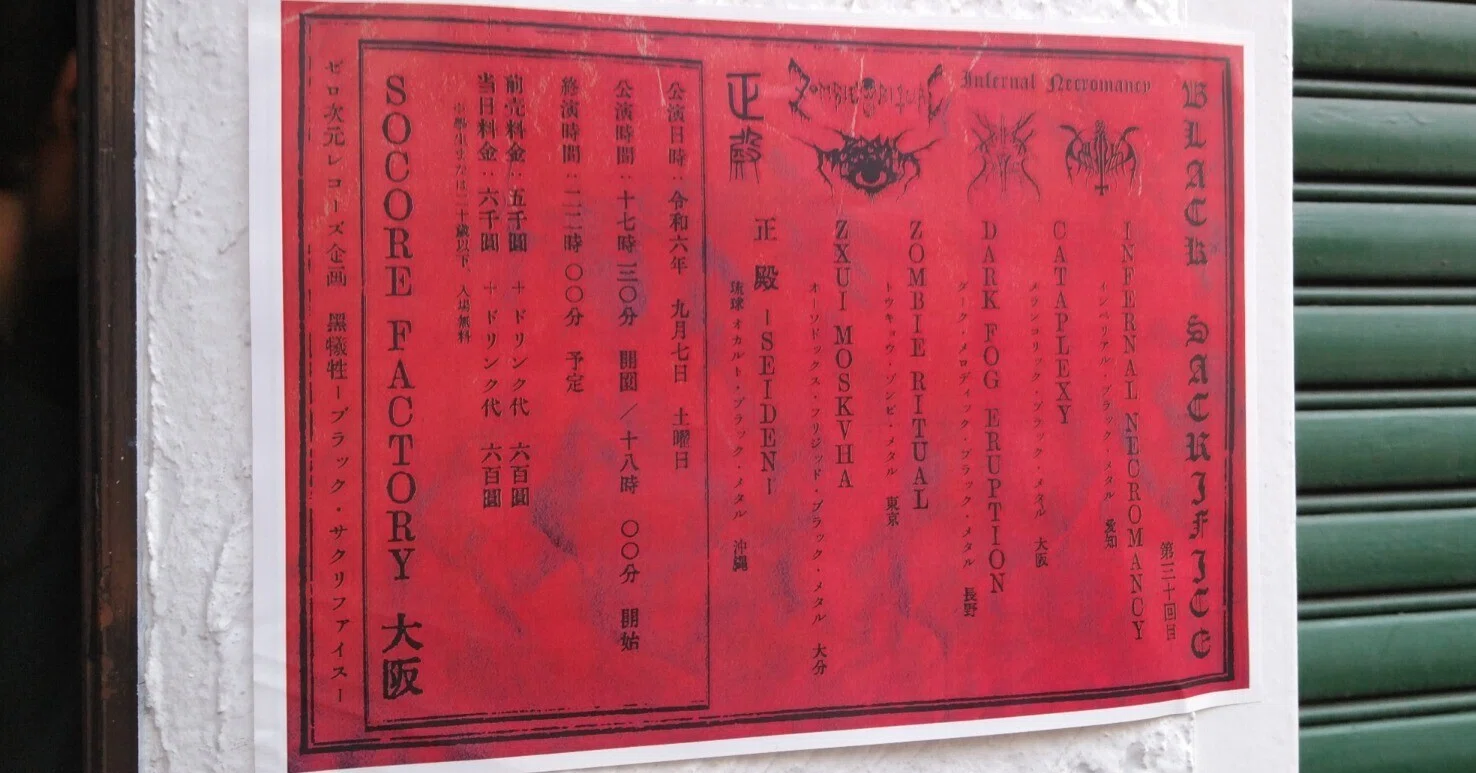 BLACK SACRIFICE
第三十回目
Infernal Necromancy
ZOMBIE RITUAL
正殿
INFERNAL NECROMANCY
インペリアル・ブラック・メタル 愛知
CATAPLEXY
メランコリック・ブラック・メタル 大阪
DARK FOG ERUPTION
ダーク・メロディック・ブラック・メタル 長野
ZOMBIE RITUAL
トウキョウ・ゾンビ・メタル 東京
ZXUI MOSKVHA
オーソドックス・フリジッド・ブラック・メタル 大分
正殿 -SEIDEN-
琉球オカルト・ブラック・メタル 沖縄
公演日時:令和六年 九月七日 土曜日
公演時間:十七時三〇分 開園/十八時 〇〇分 開始
終演時間:二二時〇〇分 予定
前売料金:五千圓 + ドリンク代 六百圓
当日料金:六千圓 + ドリンク代 六百圓
※學生または二十歳以下、入場無料
SOCORE FACTORY 大阪
ゼロ次元レコーズ企画 黑犠牲-ブラック・サクリファイス-